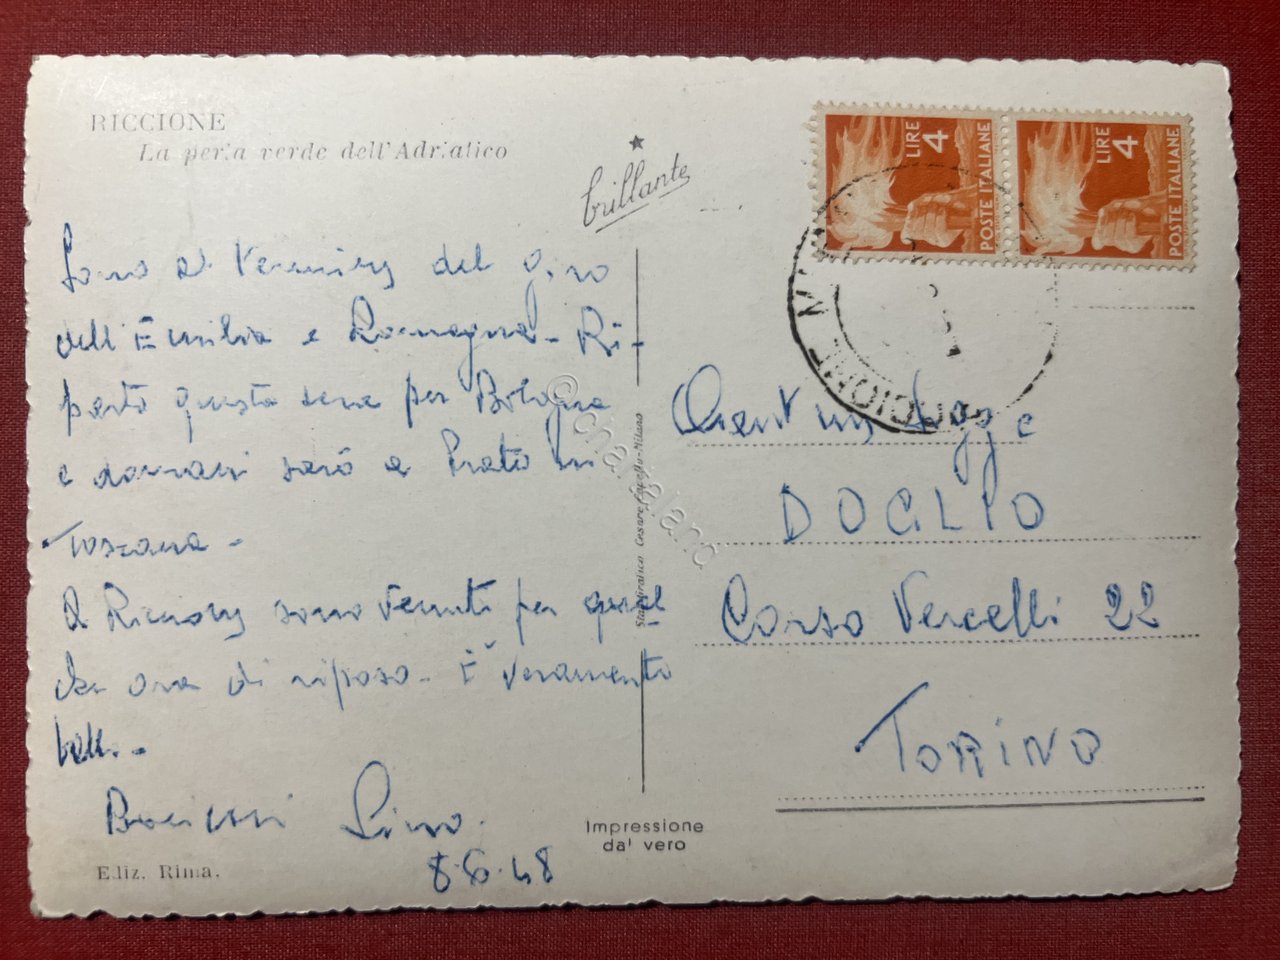 RICCIONE
La perla verde dell'Adriatico
brillante
LIRE 4
POSTE ITALIANE
LIRE 4
POSTE ITALIANE
Sono al del giro
dell'Emilia e Romagna - Ri-
parto questa sera per Bologna
e domani sarò a Prato in
Toscana -
A Riccione sono venuto per qual
che ora di riposo - È veramente
bello -
Bacioni Lino.
8.6.48
Ediz. Rima.
Impressione
da' vero
Stab. Cesare Capello - Milano
© chartaland
RICCIONE
DOGLIO
Corso Vercelli 22
TORINO